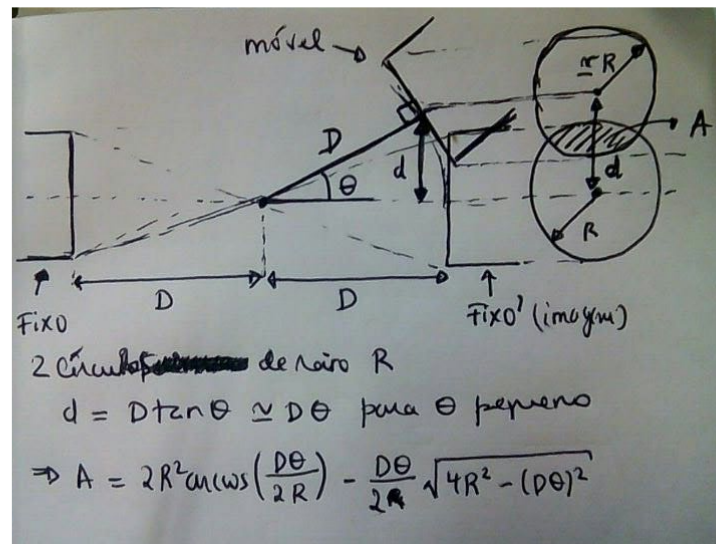 móvel
≃ R
A
D
d
d
θ
R
D
D
Fixo
Fixo' (imagem)
2 círculos de raio R
d = D tan θ ≃ Dθ para θ pequeno
⇒ A = 2R² arccos(Dθ/2R) - Dθ/2 √4R² - (Dθ)²